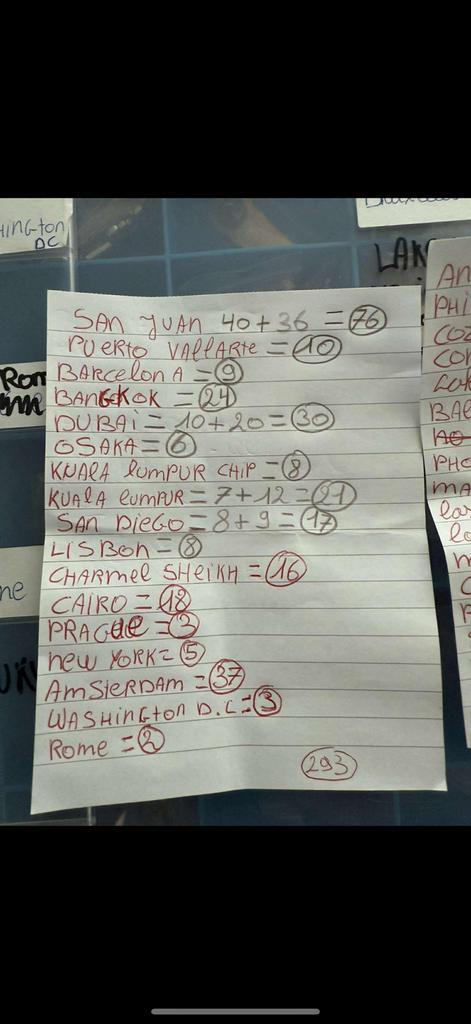 DC
LAK
SAN JUAN 40+36 = 76
PUERTO VALLARTE = 10
BARCELONA = 9
BANGKOK = 24
DUBAI = 10+20 = 30
OSAKA = 6
KUALA LUMPUR CHIP = 8
KUALA LUMPUR = 7+12 = 21
SAN DIEGO = 8+9 = 17
LISBON = 8
CHARMEL SHEIKH = 16
CAIRO = 18
PRAGUE = 3
NEW YORK = 5
AMSTERDAM = 37
WASHINGTON D.C = 3
ROME = 2
293